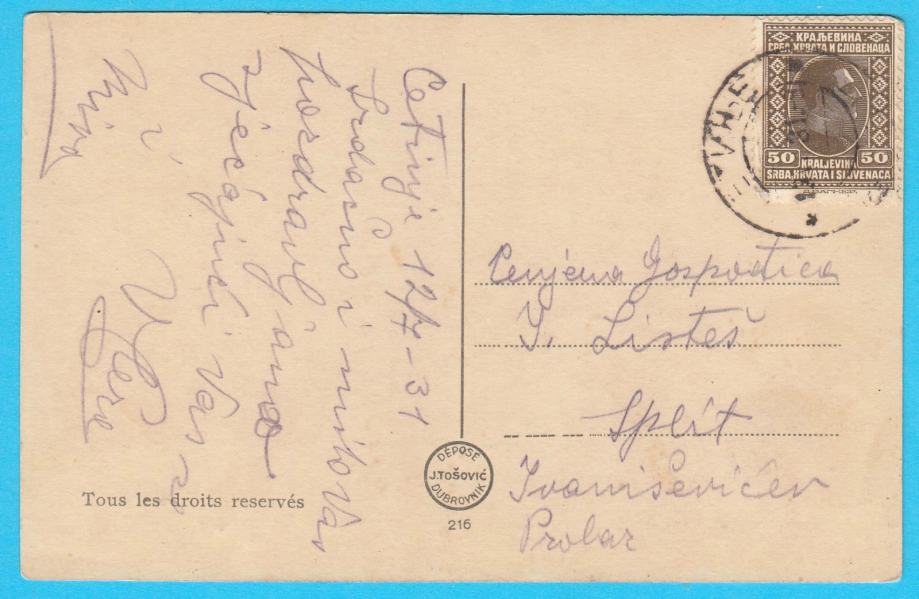 Cetinje 12/7-31
Srdačno i mnogo Vas
pozdravljamo
sjećajući Vas se
Vera
i
КРАЉЕВИНА
СРБА, ХРВАТА И СЛОВЕНАЦА
50 KRALJEVINA 50
SRBA, HRVATA I SLOVENACA
Cenjena Gospođica
Y. Listeš
Split
Ivaniševićev
Prolaz
DÉPOSÉ
J.TOŠOVIĆ
DUBROVNIK
216
Tous les droits reservés